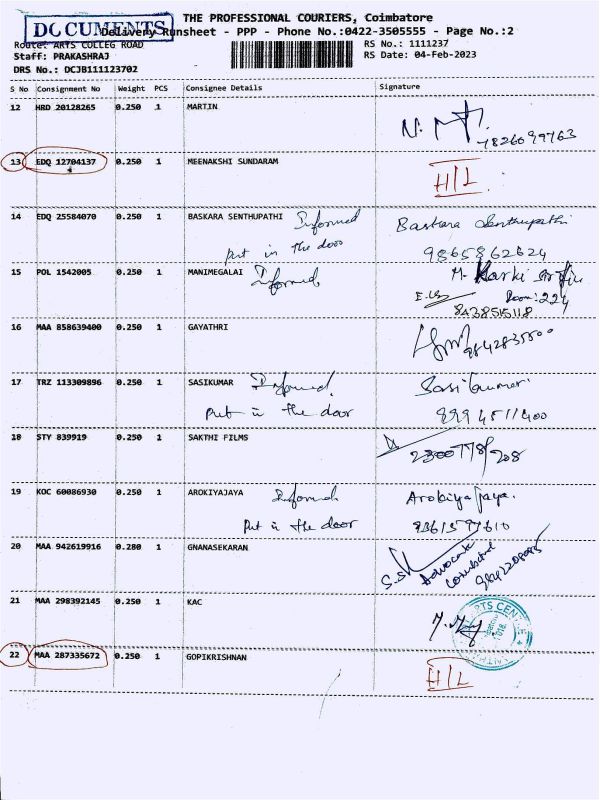 THE PROFESSIONAL COURIERS, Coimbatore
DOCUMENTS
Delivery Runsheet - PPP - Phone No.:0422-3505555 - Page No.:2
Route: ARTS COLLEG ROAD
RS No.: 1111237
Staff: PRAKASHRAJ
RS Date: 04-Feb-2023
DRS No.: DCJB111123702
S No Consignment No Weight PCS Consignee Details Signature
12 HRD 20128265 0.250 1 MARTIN
7826099763
13 EDQ 12704137 0.250 1 MEENAKSHI SUNDARAM
H/L
14 EDQ 25584070 0.250 1 BASKARA SENTHUPATHI Informed Baskara Senthupathi
put in the door 9865862624
15 POL 1542005 0.250 1 MANIMEGALAI Informed
Room: 224
8438515118
16 MAA 858639400 0.250 1 GAYATHRI
9842835500
17 TRZ 113309896 0.250 1 SASIKUMAR Informed Sasikumar
put in the door 9994511400
18 STY 839919 0.250 1 SAKTHI FILMS
19 KOC 60086930 0.250 1 AROKIYAJAYA Informed Arokiyajaya.
put in the door
20 MAA 942619916 0.280 1 GNANASEKARAN
Advocate
Coimbatore
21 MAA 298392145 0.250 1 KAC
22 MAA 287335672 0.250 1 GOPIKRISHNAN
H/L